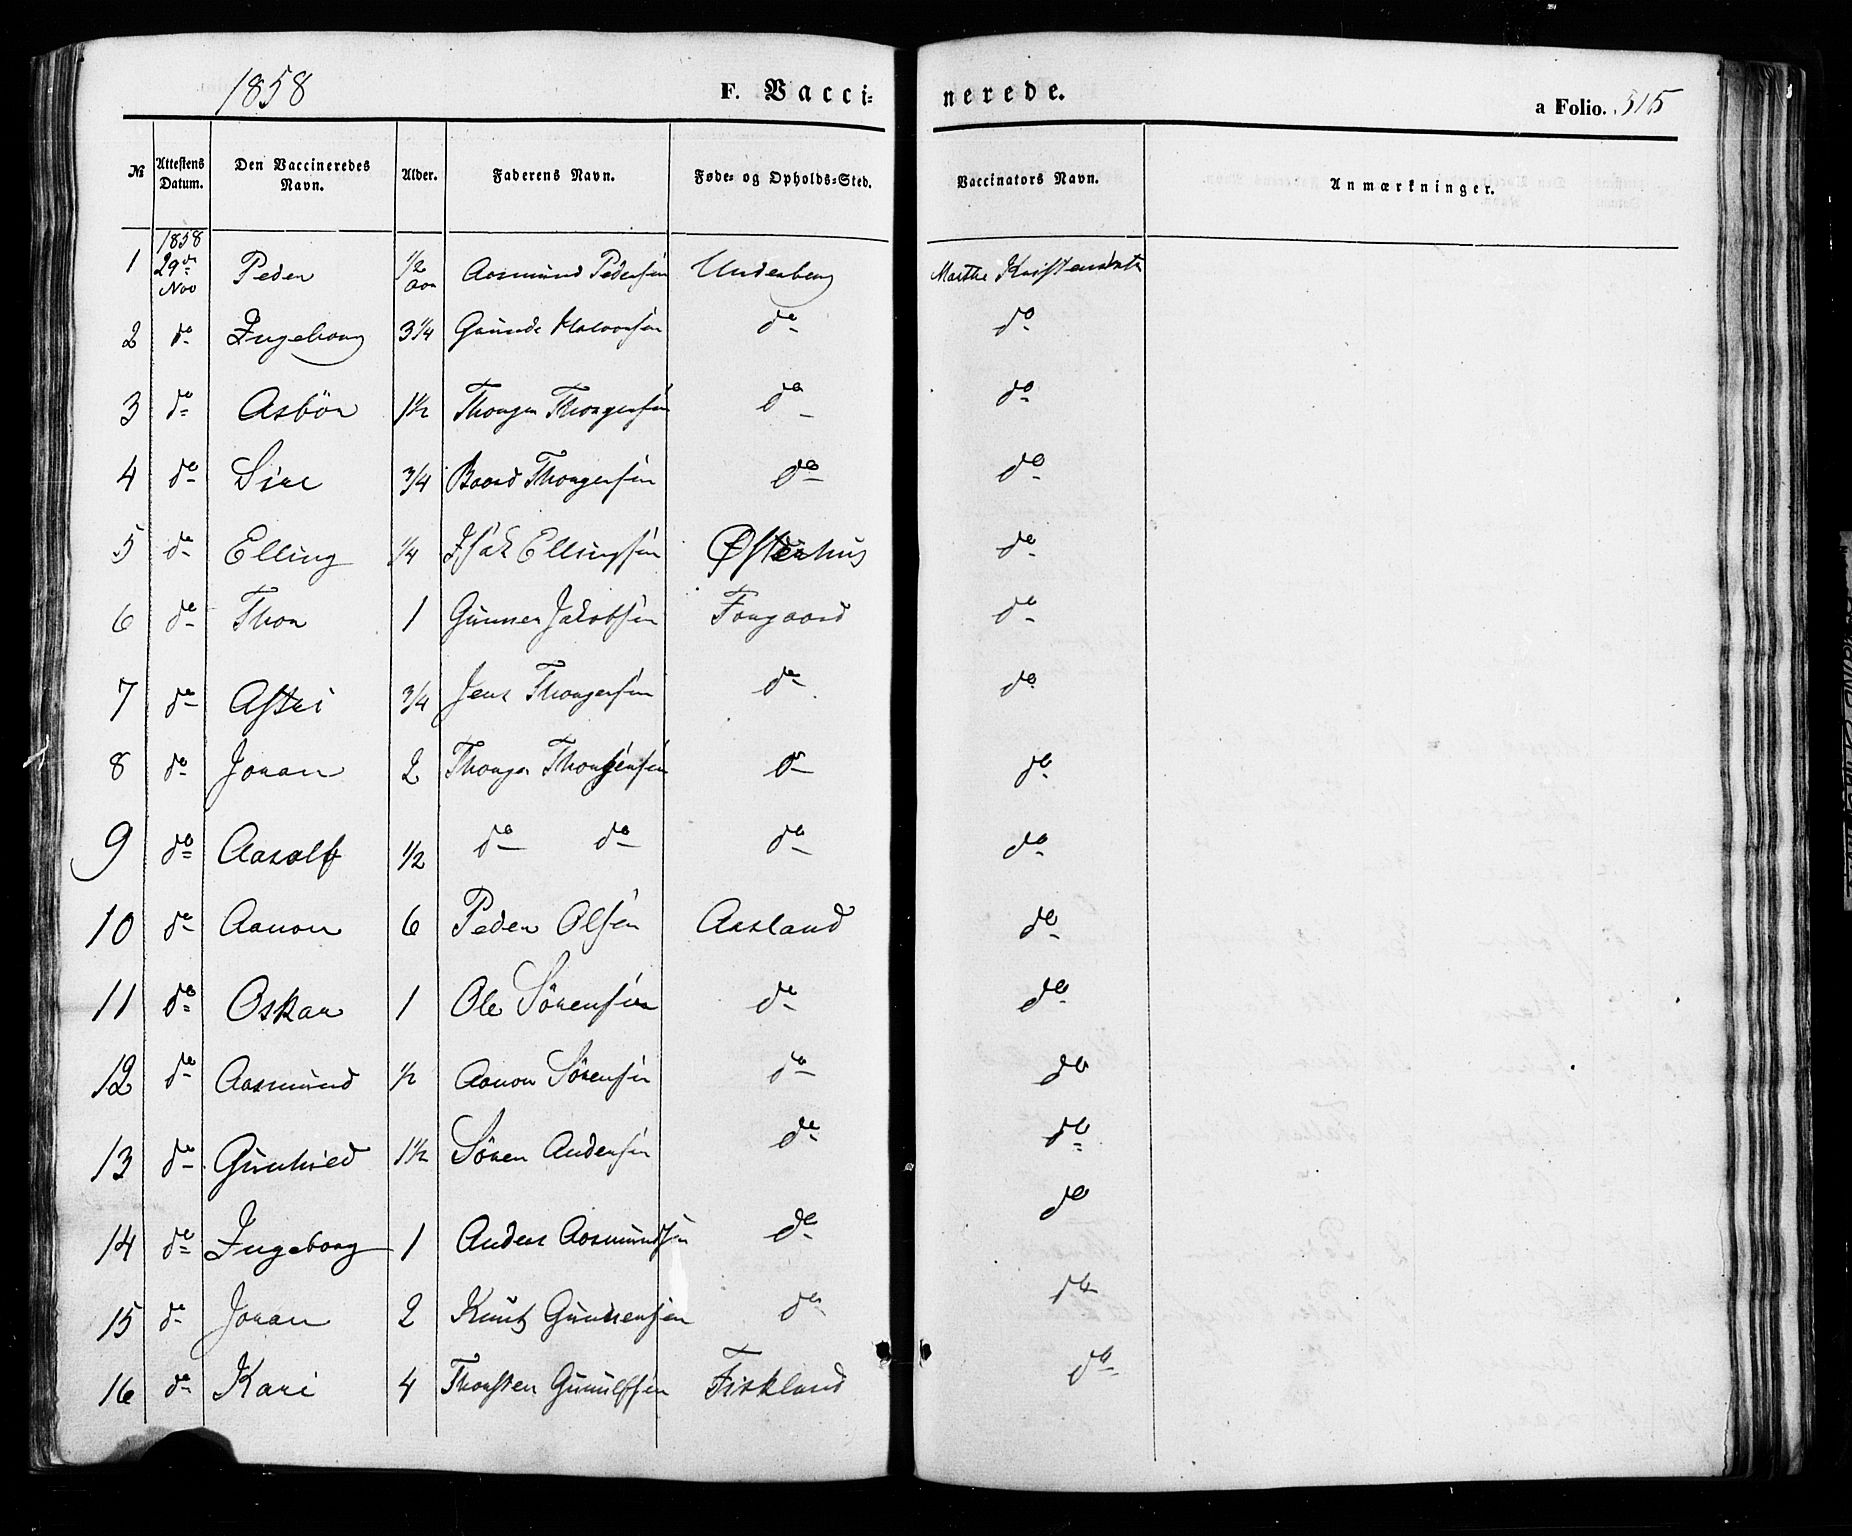 1858 F. Vacci= nerede. a Folio. 515
№ Attestens Datum. Den Vaccineredes Navn. Alder. Faderens Navn. Føde= og Opholds=Sted. Vaccinators Navn. Anmærkninger.
1 1858 29de Nov Peder 1/2 Aar Aasmund Pedersen Underberg Marthe
2 do Ingeborg 3 1/4 Gunde Halvorsen do do
3 do Asbör 1 1/2 Thorger Thorgersen do do
4 do Sire 3/4 Baard Thorgersen do do
5 do Elling 1/4 Isak Ellingsen Østerhus do
6 do Thor 1 Gunner Jakobsen Forgaard do
7 do Astri 3/4 Jens Thorgersen do do
8 do Joran 2 Thorger Thorgersen do do
9 do Aasolf 1/2 do do do do
10 do Aanon 6 Peder Olsen Aasland do
11 do Oskar 1 Ole Sörensen do do
12 do Aasmund 1/2 Aanon Sörensen do do
13 do Gunhild 1 1/2 Sören Andersen do do
14 do Ingeborg 1 Anders Aasmundsen do do
15 do Joran 2 Knut Gunnersen do do
16 do Kari 4 Thorsten Gunulfsen Fiskland do